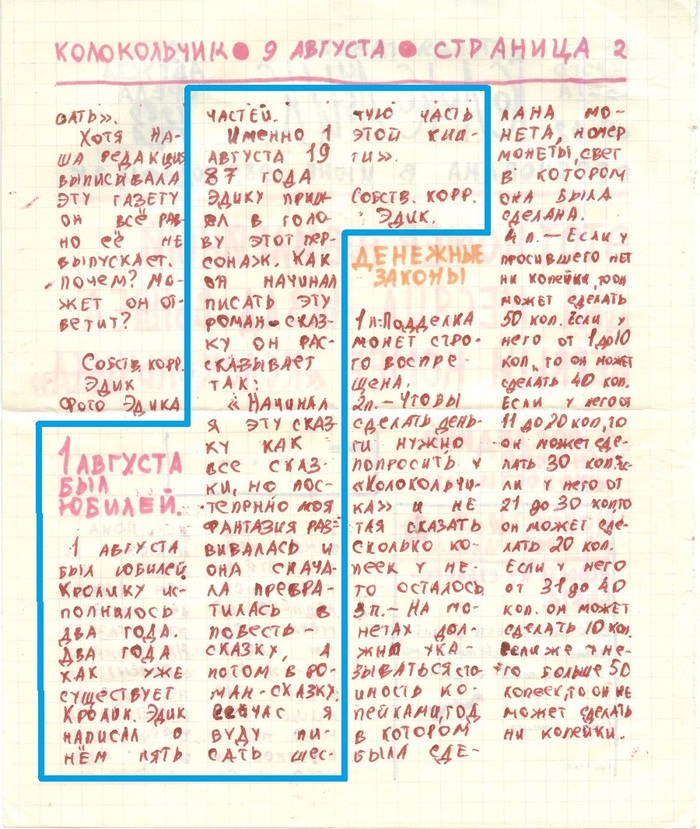 КОЛОКОЛЬЧИК ● 9 АВГУСТА ● СТРАНИЦА 2
ВАТЬ».
ХОТЯ НА-
ША РЕДАКЦИЯ
ВЫПИСЫВАЛА
ЭТУ ГАЗЕТУ
ОН ВСЁ РАВ-
НО ЕЁ НЕ
ВЫПУСКАЕТ.
ПОЧЕМУ? МО-
ЖЕТ ОН ОТ-
ВЕТИТ?
СОБСТВ. КОРР.
ЭДИК
ФОТО ЭДИКА
1 АВГУСТА
БЫЛ
ЮБИЛЕЙ.
1 АВГУСТА
БЫЛ ЮБИЛЕЙ.
КРОЛИКУ ИС-
ПОЛНИЛОСЬ
ДВА ГОДА.
ДВА ГОДА
КАК УЖЕ
СУЩЕСТВУЕТ
КРОЛИК. ЭДИК
НАПИСАЛ О
НЁМ ПЯТЬ
ЧАСТЕЙ.
ИМЕННО 1
АВГУСТА 19
87 ГОДА
ЭДИКУ ПРИШ-
ЁЛ В ГОЛО-
ВУ ЭТОТ ПЕР-
СОНАЖ. КАК
ОН НАЧИНАЛ
ПИСАТЬ ЭТУ
РОМАН-СКАЗ-
КУ ОН РАС-
СКАЗЫВАЕТ
ТАК:
«НАЧИНАЛ
Я ЭТУ СКАЗ-
КУ КАК
ВСЕ СКАЗ-
КИ, НО ПОС-
ТЕПЕННО МОЯ
ФАНТАЗИЯ РАЗ-
ВИВАЛАСЬ И
ОНА СНАЧА-
ЛА ПРЕВРА-
ТИЛАСЬ В
ПОВЕСТЬ-
СКАЗКУ, А
ПОТОМ В РО-
МАН-СКАЗКУ.
СЕЙЧАС Я
БУДУ ПИ-
САТЬ ШЕС-
ТУЮ ЧАСТЬ
ЭТОЙ КНИ-
ГИ».
СОБСТВ. КОРР.
ЭДИК.
ДЕНЕЖНЫЕ
ЗАКОНЫ
1п-ПОДДЕЛКА
МОНЕТ СТРО-
ГО ВОСПРЕ-
ЩЕНА.
2п.-ЧТОБЫ
СДЕЛАТЬ ДЕНЬ-
ГИ НУЖНО
ПОПРОСИТЬ У
«КОЛОКОЛЬЧИ-
КА» И НЕ
ТАЯ СКАЗАТЬ
СКОЛЬКО КО-
ПЕЕК У НЕ-
ГО ОСТАЛОСЬ
3п.- НА МО-
НЕТАХ ДОЛ-
ЖНА УКА-
ЗЫВАТЬСЯ СТО-
ИМОСТЬ КО-
ПЕЙКАМИ, ГОД
В КОТОРОМ
БЫЛА СДЕ-
ЛАНА МО-
НЕТА, НОМЕР
МОНЕТЫ СВЕТ
В КОТОРОМ
ОНА БЫЛА
СДЕЛАНА.
4п.-ЕСЛИ У
ПРОСИВШЕГО НЕТ
НИ КОПЕЙКИ, ТО ОН
МОЖЕТ СДЕЛАТЬ
50 КОП. ЕСЛИ У
НЕГО ОТ 1 ДО 10
КОП., ТО ОН МОЖЕТ
СДЕЛАТЬ 40 КОП.
ЕСЛИ У НЕГО ОТ
11 ДО 20 КОП, ТО
ОН МОЖЕТ СДЕ-
ЛАТЬ 30 КОП. ЕС-
ЛИ У НЕГО ОТ
21 ДО 30 КОП ТО
ОН МОЖЕТ СДЕ-
ЛАТЬ 20 КОП.
ЕСЛИ У НЕГО
ОТ 31 ДО 40
КОП. ОН МОЖЕТ
СДЕЛАТЬ 10 КОП.
ЕСЛИ ЖЕ У НЕ-
ГО БОЛЬШЕ 50
КОПЕЕК, ТО ОН НЕ
МОЖЕТ СДЕЛАТЬ
НИ КОПЕЙКИ.